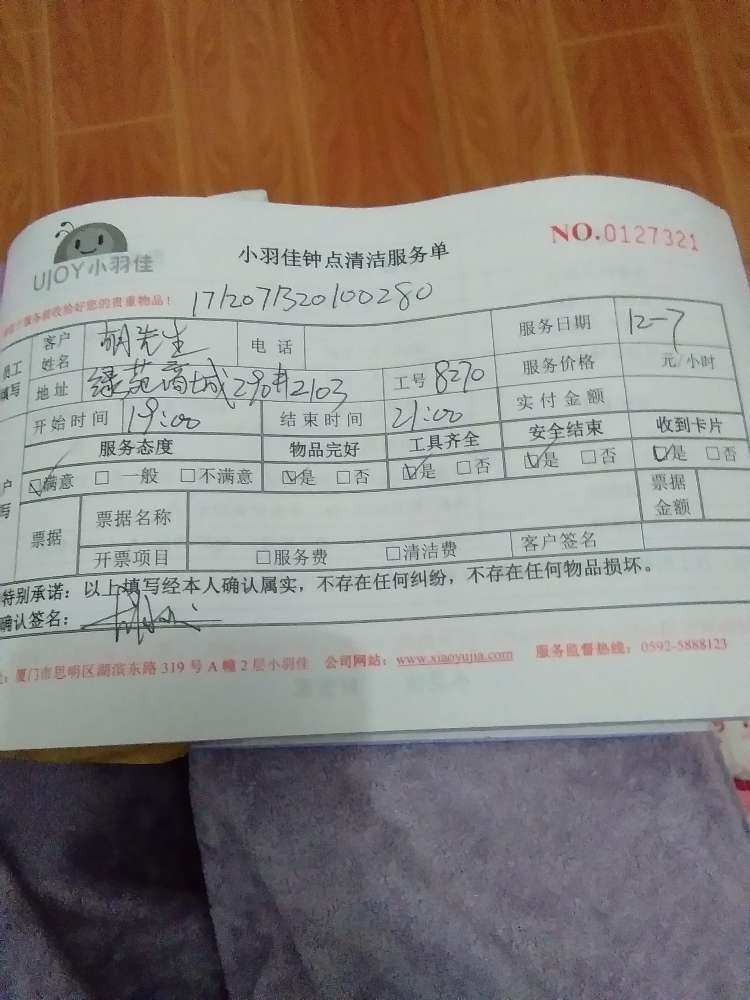 UJOY小羽佳
小羽佳钟点清洁服务单
NO.0127321
服务前验收给好您的贵重物品!
1712071320100280
员工填写 客户姓名 胡先生 电话 服务日期 12-7
地址 绿苑商城290#2103 工号 8270 服务价格 元/小时
开始时间 19:00 结束时间 21:00 实付金额
服务态度 物品完好 工具齐全 安全结束 收到卡片
☑满意 □一般 □不满意 ☑是 □否 ☑是 □否 ☑是 □否 ☑是 □否
票据 票据名称 票据金额
开票项目 □服务费 □清洁费 客户签名
特别承诺:以上填写经本人确认属实,不存在任何纠纷,不存在任何物品损坏。
确认签名:
厦门市思明区湖滨东路319号A幢2层小羽佳 公司网站:www.xiaoyujia.com 服务监督热线:0592-5888123